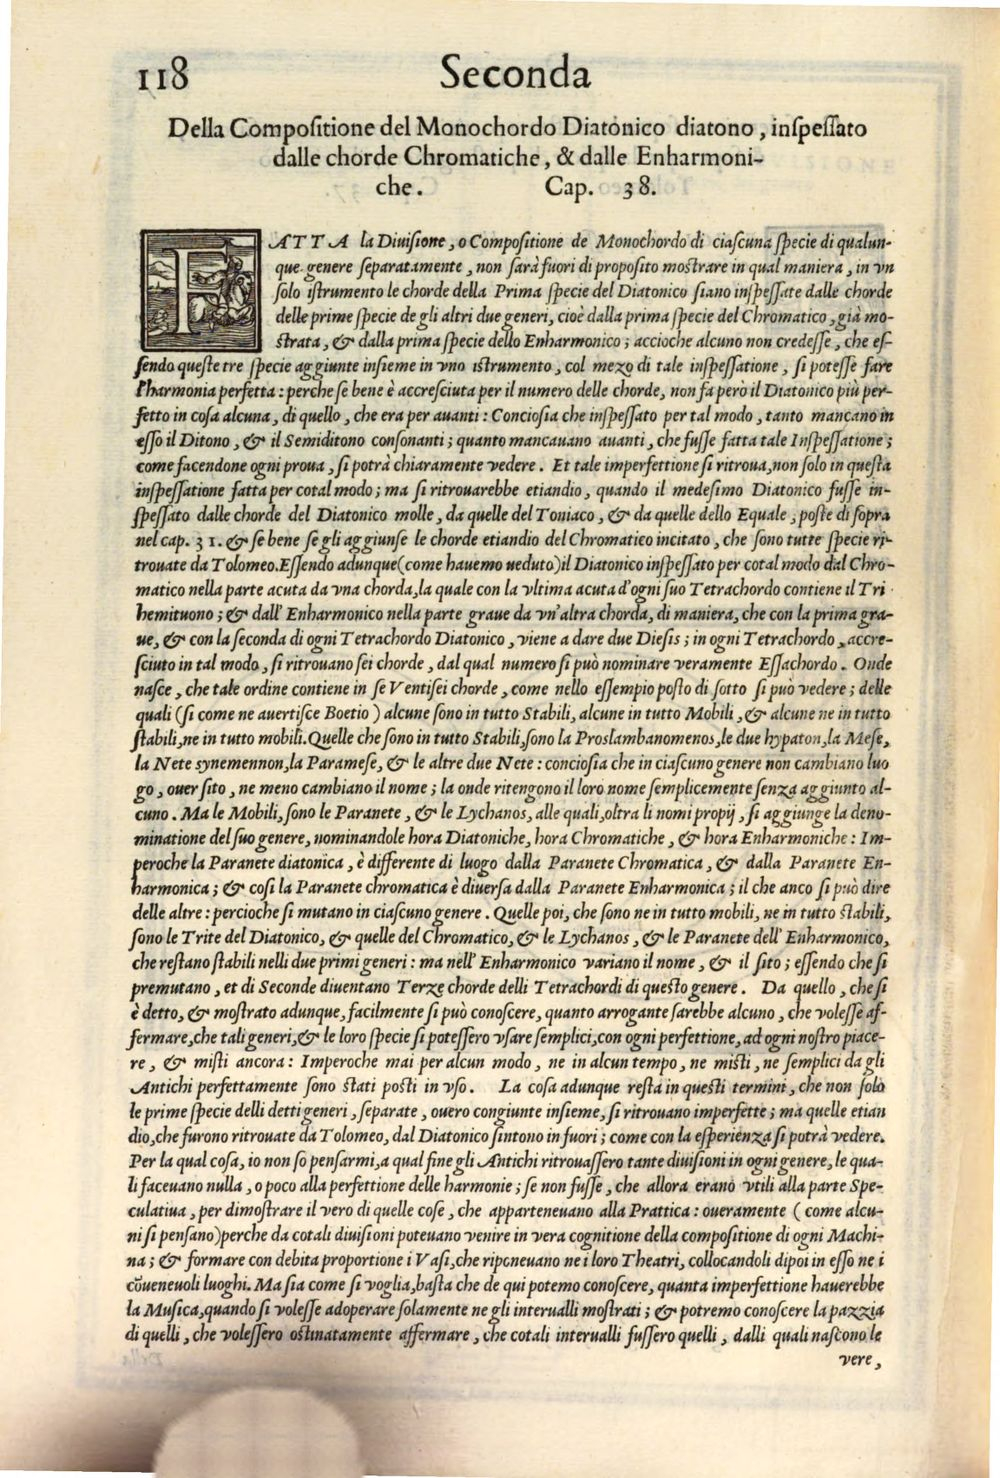 118 Seconda
Della Compoſitione del Monochordo Diatonico diatono, inſpeſſato
dalle chorde Chromatiche, & dalle Enharmoni-
che. Cap. 38.
FATTA la Diuiſione, o Compoſitione de Monochordo di ciaſcuna ſpecie di qualun-
que genere ſeparatamente, non ſarà fuori di propoſito moſtrare in qual maniera, in vn
ſolo iſtrumento le chorde della Prima ſpecie del Diatonico ſiano inſpeſſate dalle chorde
delle prime ſpecie de gli altri due generi, cioè dalla prima ſpecie del Chromatico, già mo-
ſtrata, & dalla prima ſpecie dello Enharmonico; accioche alcuno non credeſſe, che eſ-
ſendo queſte tre ſpecie aggiunte inſieme in vno iſtrumento, col mezo di tale inſpeſſatione, ſi poteſſe fare
l'harmonia perfetta: perche ſe bene è accreſciuta per il numero delle chorde, non fa però il Diatonico più per-
fetto in coſa alcuna, di quello, che era per auanti: Concioſia che inſpeſſato per tal modo, tanto mancano in
eſſo il Ditono, & il Semiditono conſonanti; quanto mancauano auanti, che fuſſe fatta tale Inſpeſſatione;
come facendone ogni proua, ſi potrà chiaramente vedere. Et tale imperfettione ſi ritroua, non ſolo in queſta
inſpeſſatione fatta per cotal modo; ma ſi ritrouarebbe etiandio, quando il medeſimo Diatonico fuſſe in-
ſpeſſato dalle chorde del Diatonico molle, da quelle del Toniaco, & da quelle dello Equale, poſte di ſopra
nel cap. 31. & ſe bene ſe gli aggiunſe le chorde etiandio del Chromatico incitato, che ſono tutte ſpecie ri-
trouate da Tolomeo. Eſſendo adunque (come hauemo ueduto) il Diatonico inſpeſſato per cotal modo dal Chro-
matico nella parte acuta da vna chorda, la quale con la vltima acuta d'ogni ſuo Tetrachordo contiene il Tri
hemituono; & dall' Enharmonico nella parte graue da vn' altra chorda, di maniera, che con la prima gra-
ue, & con la ſeconda di ogni Tetrachordo Diatonico, viene a dare due Dieſis; in ogni Tetrachordo, accre-
ſciuto in tal modo, ſi ritrouano ſei chorde, dal qual numero ſi può nominare veramente Eſſachordo. Onde
naſce, che tale ordine contiene in ſe Ventiſei chorde, come nello eſſempio poſto di ſotto ſi può vedere; delle
quali (ſi come ne auertiſce Boetio) alcune ſono in tutto Stabili, alcune in tutto Mobili, & alcune ne in tutto
ſtabili, ne in tutto mobili. Quelle che ſono in tutto Stabili, ſono la Proslambanomenos, le due hypaton, la Meſe,
la Nete synemennon, la Parameſe, & le altre due Nete: concioſia che in ciaſcuno genere non cambiano luo
go, ouer ſito, ne meno cambiano il nome; la onde ritengono il loro nome ſemplicemente ſenza aggiunto al-
cuno. Ma le Mobili, ſono le Paranete, & le Lychanos, alle quali, oltra li nomi propij, ſi aggiunge la deno-
minatione del ſuo genere, nominandole hora Diatoniche, hora Chromatiche, & hora Enharmoniche: Im-
peroche la Paranete diatonica, è differente di luogo dalla Paranete Chromatica, & dalla Paranete En-
harmonica; & coſi la Paranete chromatica è diuerſa dalla Paranete Enharmonica; il che anco ſi può dire
delle altre: percioche ſi mutano in ciaſcuno genere. Quelle poi, che ſono ne in tutto mobili, ne in tutto ſtabili,
ſono le Trite del Diatonico, & quelle del Chromatico, & le Lychanos, & le Paranete dell' Enharmonico,
che reſtano ſtabili nelli due primi generi: ma nell' Enharmonico variano il nome, & il ſito; eſſendo che ſi
premutano, et di Seconde diuentano Terze chorde delli Tetrachordi di queſto genere. Da quello, che ſi
è detto, & moſtrato adunque, facilmente ſi può conoſcere, quanto arrogante ſarebbe alcuno, che voleſſe af-
fermare, che tali generi, & le loro ſpecie ſi poteſſero vſare ſemplici, con ogni perfettione, ad ogni noſtro piace-
re, & miſti ancora: Imperoche mai per alcun modo, ne in alcun tempo, ne miſti, ne ſemplici da gli
Antichi perfettamente ſono ſtati poſti in vſo. La coſa adunque reſta in queſti termini, che non ſolo
le prime ſpecie delli detti generi, ſeparate, ouero congiunte inſieme, ſi ritrouano imperfette; ma quelle etian
dio, che furono ritrouate da Tolomeo, dal Diatonico ſintono in fuori; come con la eſperienza ſi potrà vedere.
Per la qual coſa, io non ſo penſarmi, a qual fine gli Antichi ritrouaſſero tante diuiſioni in ogni genere, le qua-
li faceuano nulla, o poco alla perfettione delle harmonie; ſe non fuſſe, che allora erano vtili alla parte Spe-
culatiua, per dimoſtrare il vero di quelle coſe, che apparteneuano alla Prattica: oueramente (come alcu-
ni ſi penſano) perche da cotali diuiſioni poteuano venire in vera cognitione della compoſitione di ogni Machi-
na; & formare con debita proportione i Vaſi, che riponeuano ne i loro Theatri, collocandoli dipoi in eſſo ne i
cõueneuoli luoghi. Ma ſia come ſi voglia, baſta che de qui potemo conoſcere, quanta imperfettione hauerebbe
la Muſica, quando ſi voleſſe adoperare ſolamente ne gli interualli moſtrati; & potremo conoſcere la pazzia
di quelli, che voleſſero oſtinatamente affermare, che cotali interualli fuſſero quelli, dalli quali naſcono le
vere,